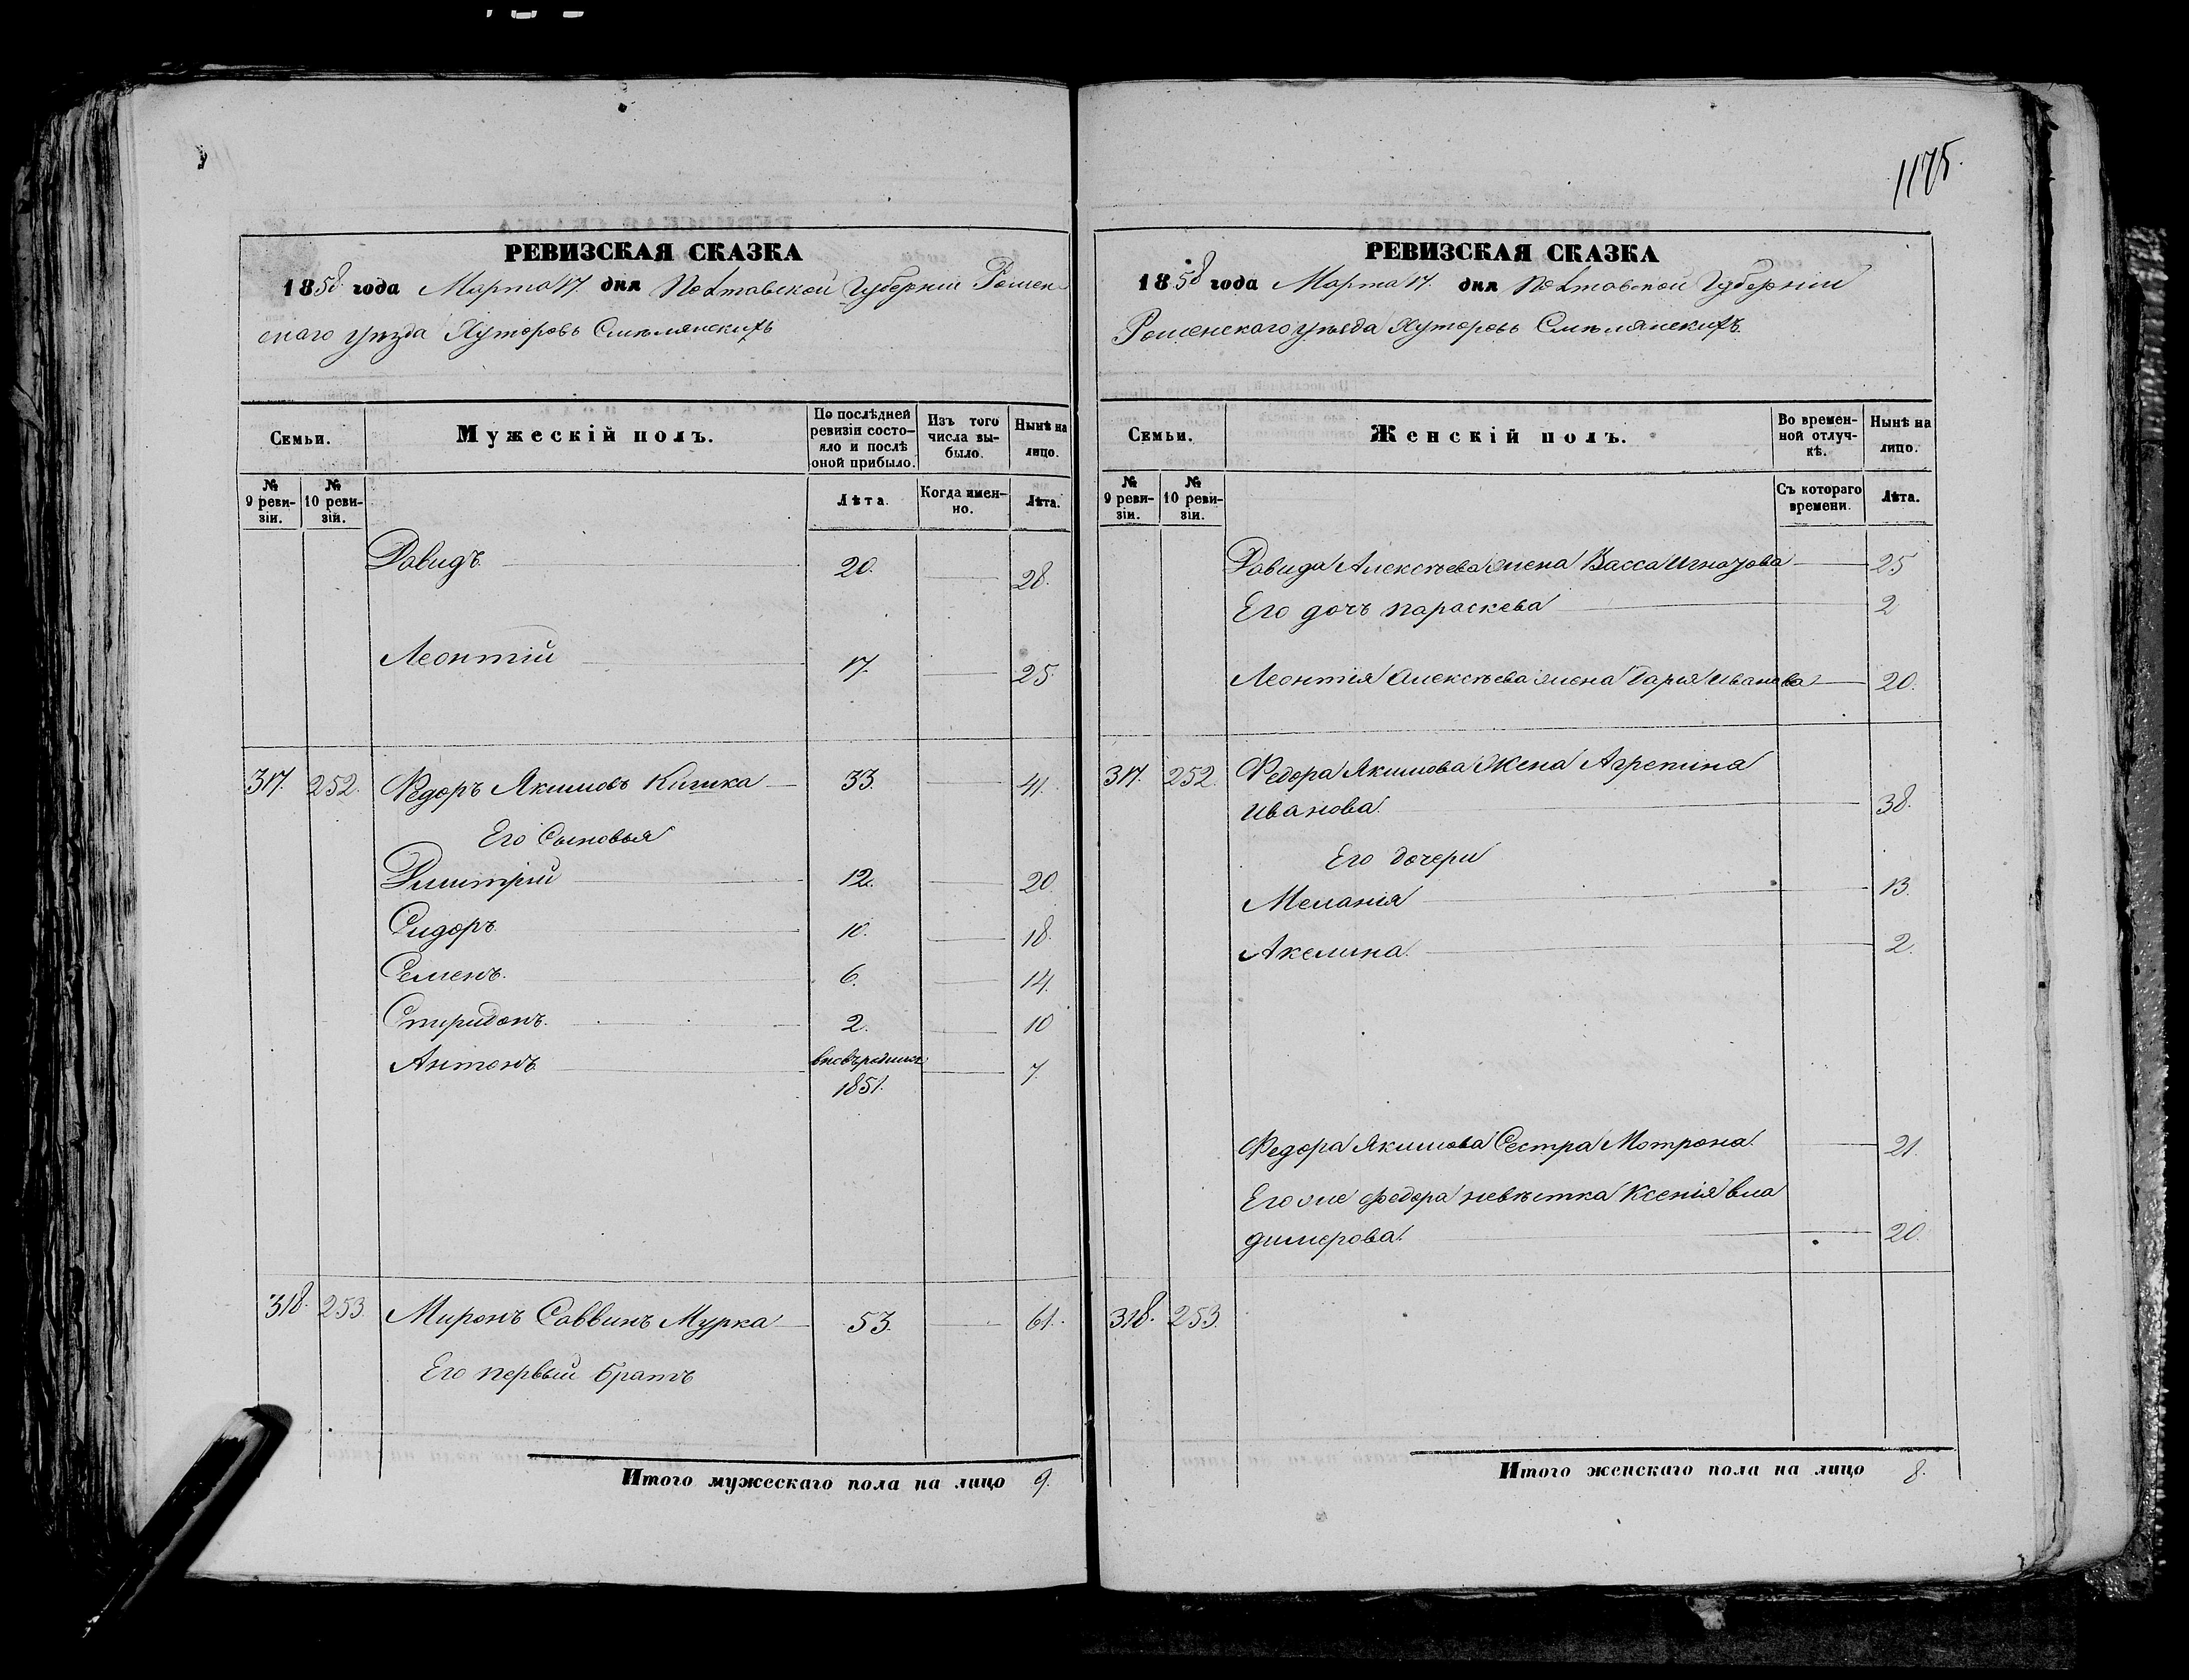 1175.
РЕВИЗСКАЯ СКАЗКА
1858 года Марта 17. дня Полтавской Губерніи Ромен
скаго уѣзда Хуторовъ Смѣлянскихъ
Семьи.
Мужескій полъ.
По послѣдней
ревизіи состо-
яло и послѣ
оной прибыло.
Изъ того
числа вы-
было.
Нынѣ на
лицо.
№
9 реви-
зіи.
№
10 реви-
зіи.
Лѣта.
Когда имен-
но.
Лѣта.
Давидъ 20. 28.
Леонтій 17. 25.
317. 252. Федоръ Якимовъ Кишка 33. 41.
Его Сыновья
Димитрій 12. 20.
Сидоръ 10. 18.
Семенъ. 6. 14.
Спиридонъ. 2. 10
Антонъ вновьрожден 7.
1851.
318. 253. Миронъ Саввинъ Мурка 53. 61.
Его первый братъ
Итого мужескаго пола на лицо 9.
РЕВИЗСКАЯ СКАЗКА
1858 года Марта 17. дня Полтавской Губерніи
Роменскаго уѣзда Хуторовъ Смѣлянскихъ
Семьи.
Женскій полъ.
Во времен-
ной отлуч-
кѣ.
Нынѣ на
лицо.
№
9 реви-
зіи.
№
10 реви-
зіи.
Съ котораго
времени.
Лѣта.
Давида Алексѣева жена Васса Игнатова 25
Его дочь Параскева 2
Леонтія Алексѣева жена Дарья Иванова 20.
317. 252. Федора Якимова Жена Агрепина
Иванова. 38.
Его дочери
Меланія 13.
Акелина. 2.
Федора Якимова Сестра Мотрона. 21.
Его же Федора невѣстка Ксенія Вла
димерова. 20.
318. 253.
Итого женскаго пола на лицо 8.